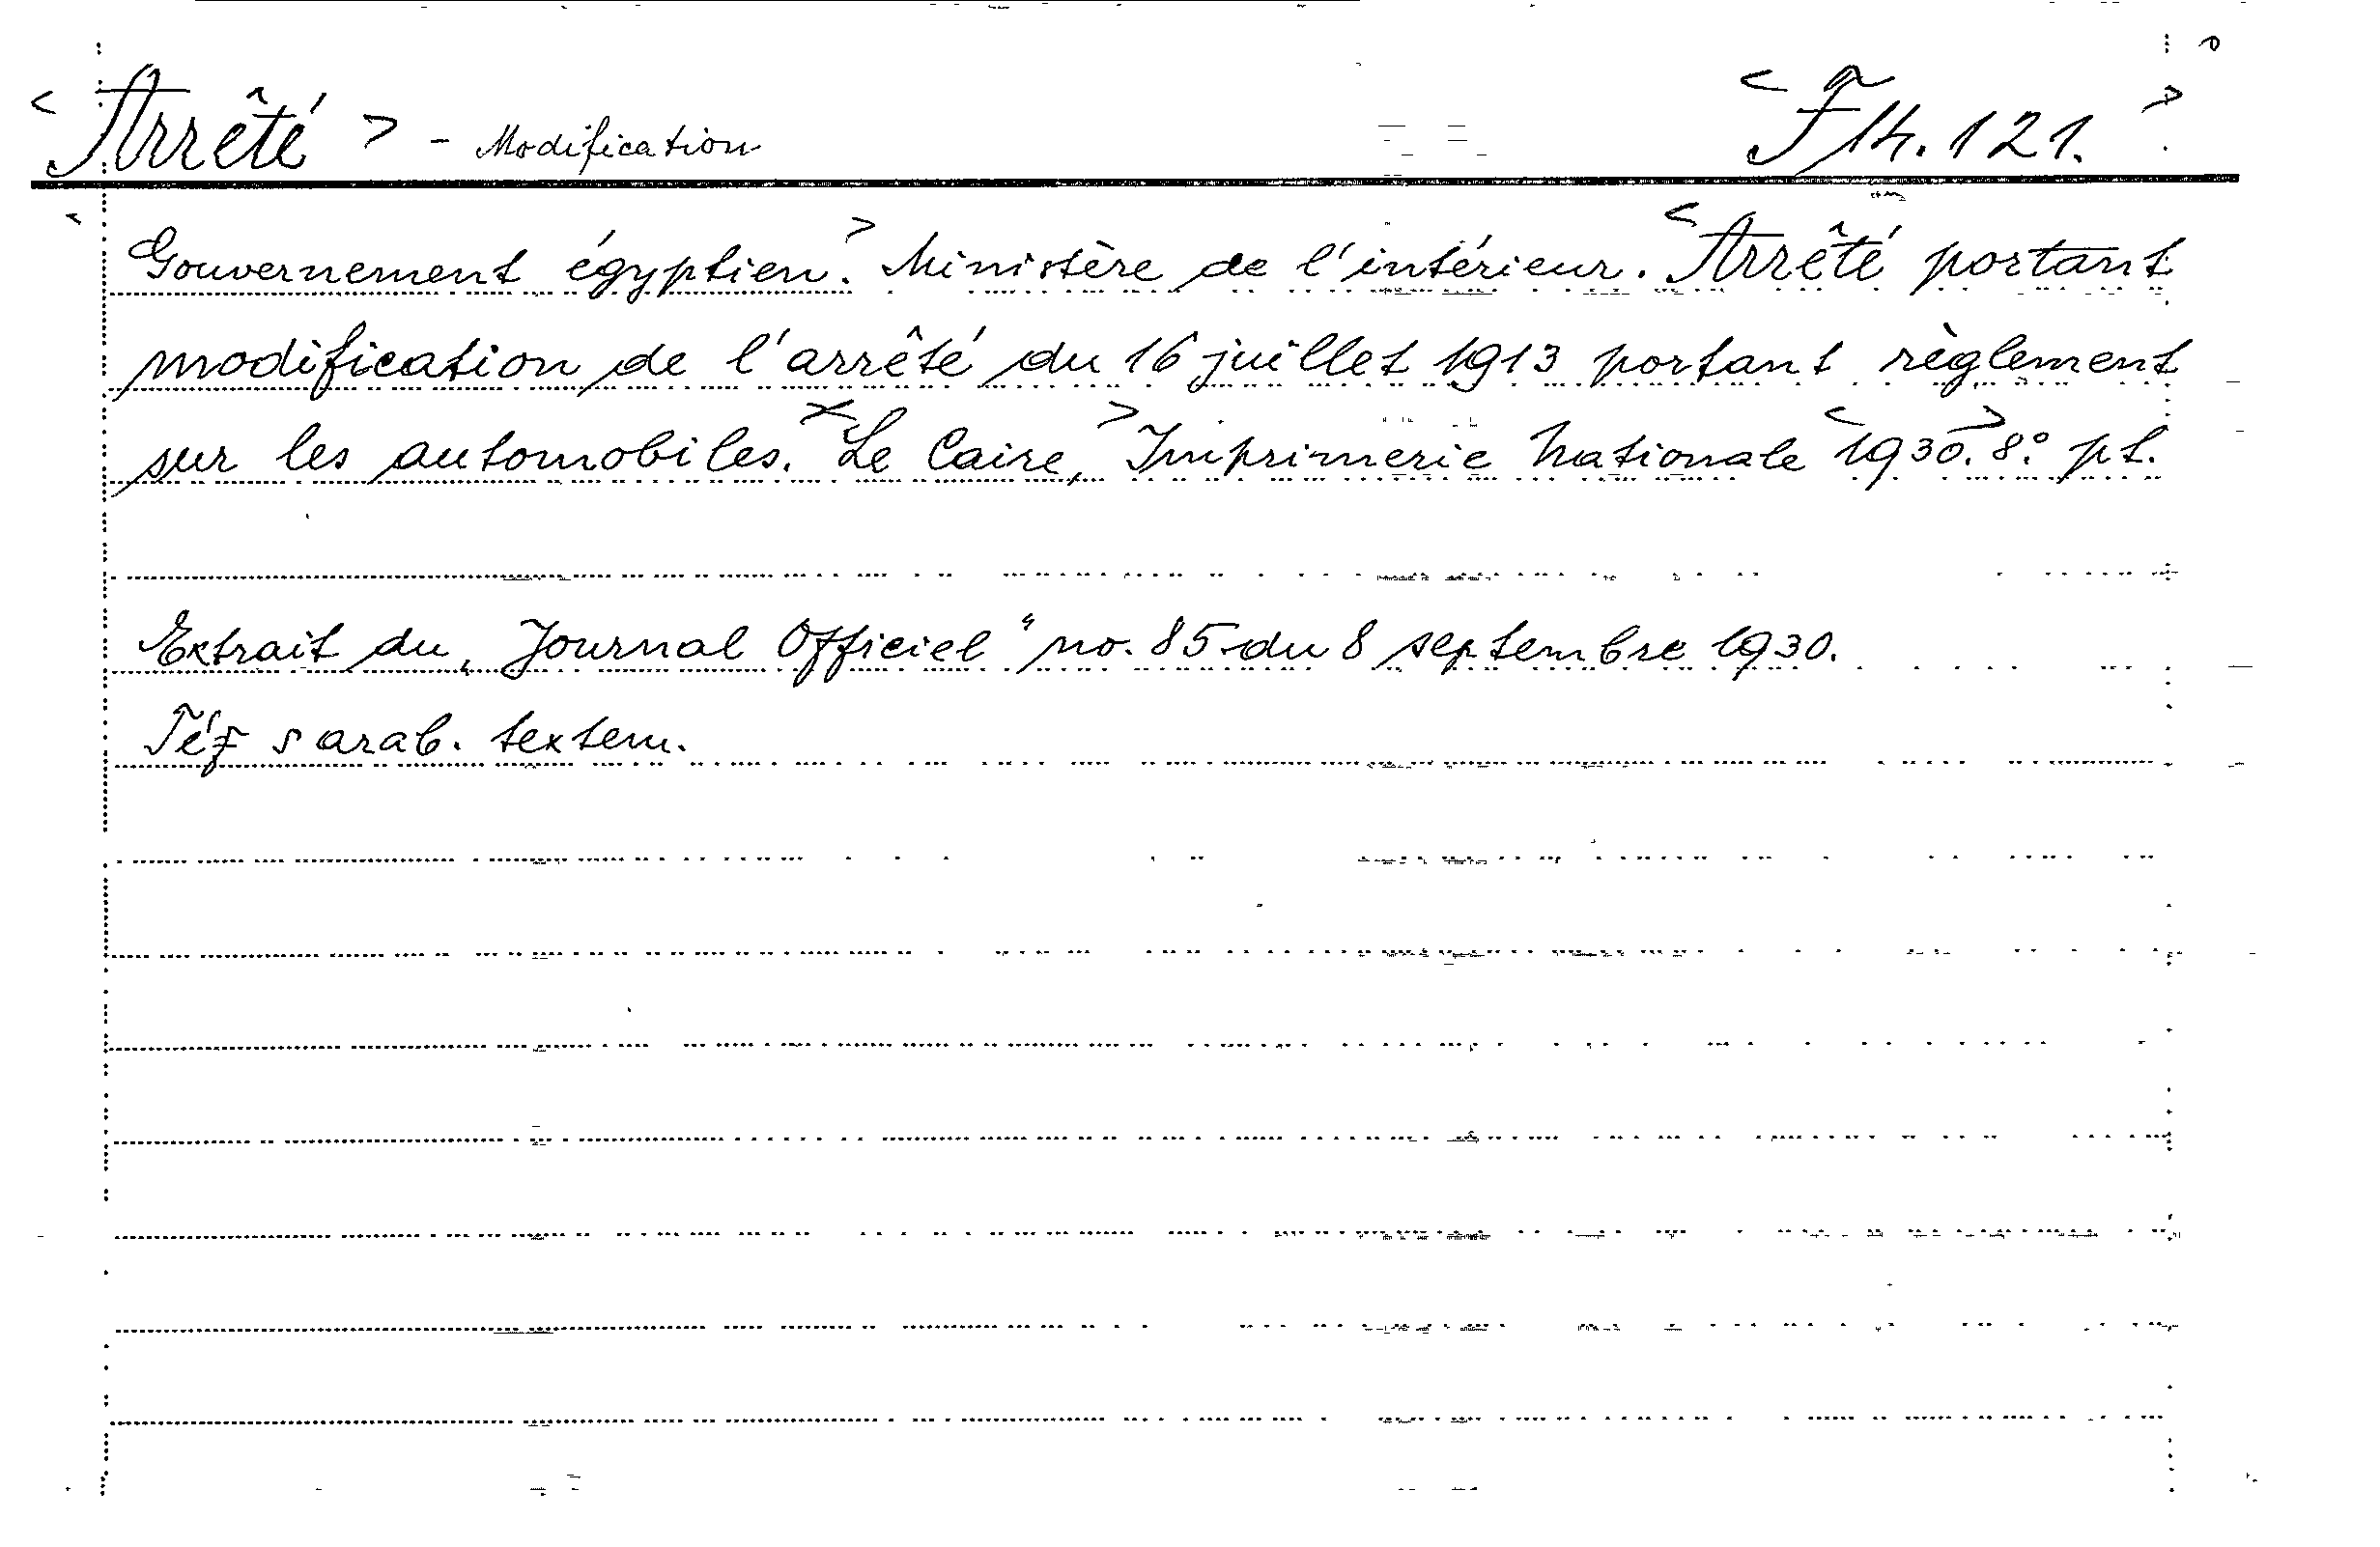 < Arrêté > - Modification < F 14.121. >
< Gouvernement égyptien. > Ministère de l'intérieur. < Arrêté portant
modification de l'arrêté du 16 juillet 1913 portant règlement
sur les automobiles. >< Le Caire, > Imprimerie Nationale < 1930. > 8.° pt.
Extrait du „Journal Officiel“ no. 85 du 8 septembre 1930.
Též s arab. textem.